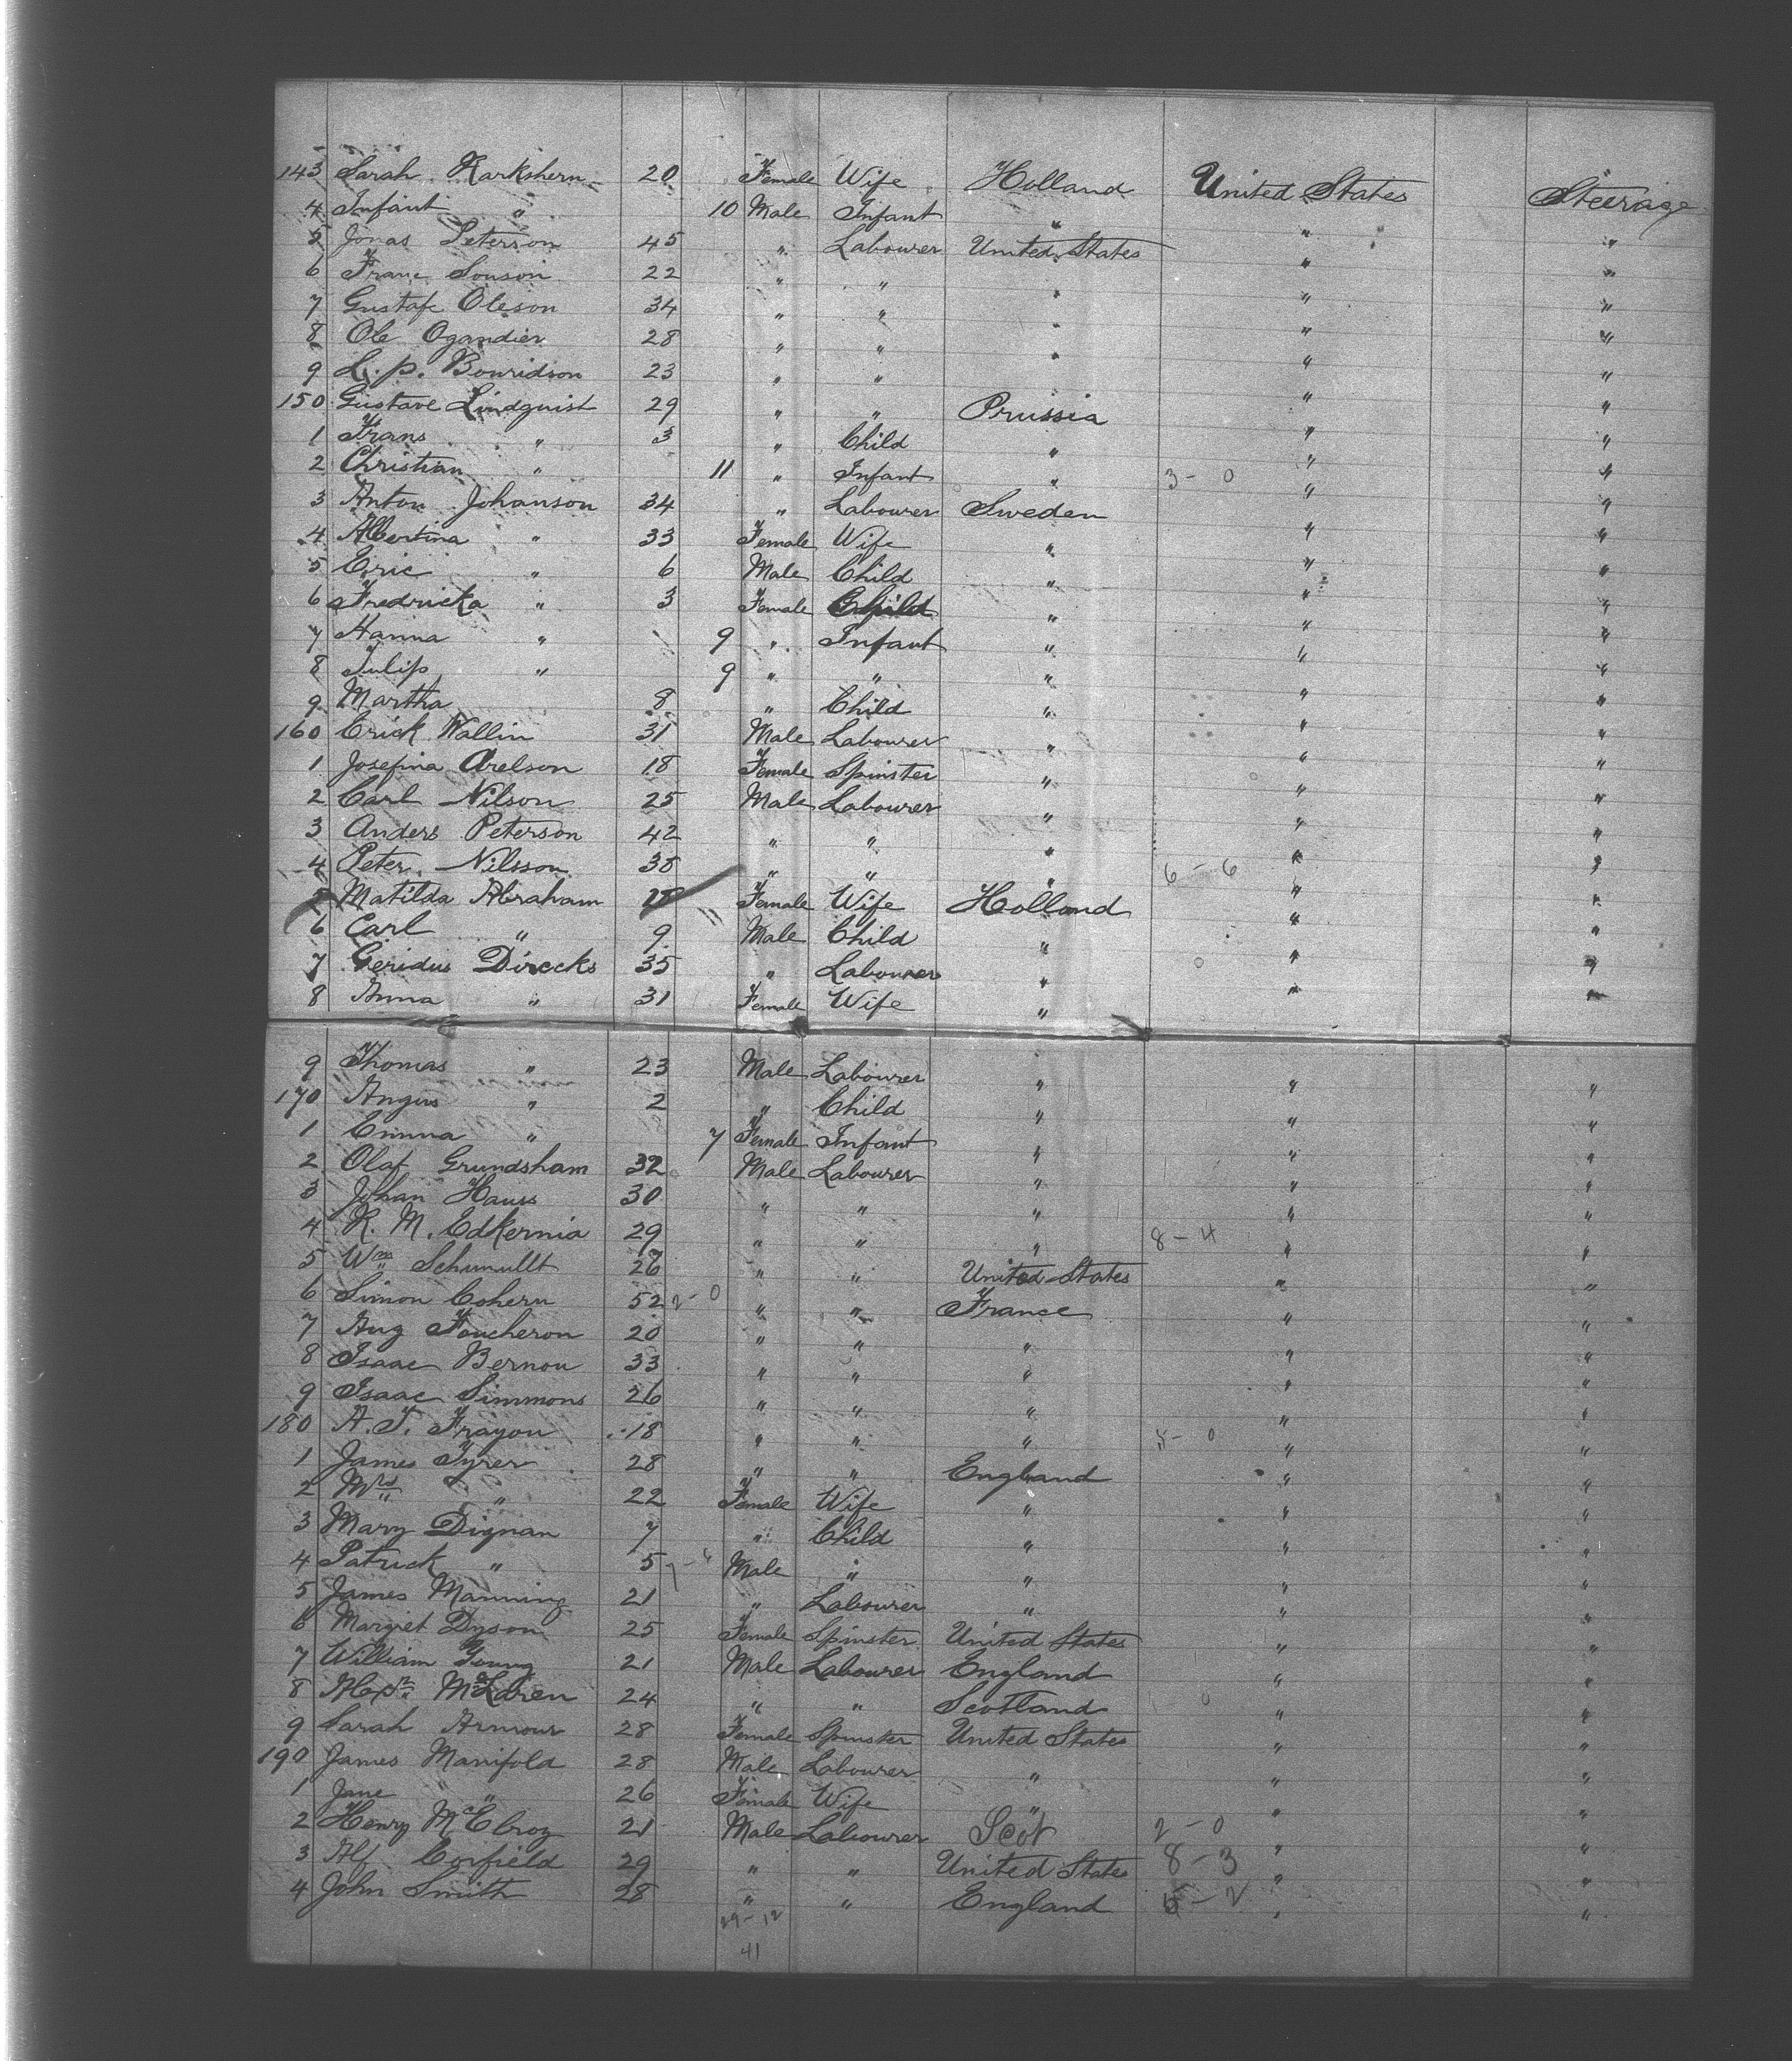 143 Sarah Karkshern 20 Female Wife Holland United States Steerage
4 Infant " 10 Male Infant " " "
5 Jonas Peterson 45 " Labourer United States " "
6 Franc Souson 22 " " " " "
7 Gustafe Oleson 34 " " " " "
8 Ole Ogandier 28 " " " " "
9 L. p. Bouridson 23 " " " " "
150 Gustave Lindquist 29 " " Prussia " "
1 Frans " 3 " Child " " "
2 Christian " 11 " Infant " 3 - 0 " "
3 Anton Johanson 34 " Labourer Sweden " "
4 Albertina " 33 Female Wife " " "
5 Eric " 6 Male Child " " "
6 Fredricka " 3 Female Child " " "
7 Hanna " 9 " Infant " " "
8 Julip " 9 " " " " "
9 Martha 8 " Child " " "
160 Erick Wallin 31 Male Labourer " " "
1 Josefina Arelson 18 Female Spinster " " "
2 Carl Nilson 25 Male Labourer " " "
3 Anders Peterson 42 " " " " "
4 Peter Nilsson 35 " " " 6 - 6 " "
5 Matilda Abraham 28 Female Wife Holland " "
6 Carl " 9 Male Child " " "
7 Geridus Dircks 35 " Labourer " " "
8 Anna " 31 Female Wife " " "
9 Thomas " 23 Male Labourer " " "
170 Angus " 2 " Child " " "
1 Emma " 7 Female Infant " " "
2 Olaf Grundsham 32 Male Labourer " " "
3 Johan Hauss 30 " " " " "
4 K. M. Edkernia 29 " " " 8 - 4 " "
5 Wm Schmullt 26 " " United States " "
6 Simon Cohern 52 2 - 0 " " France " "
7 Aug Foucheron 20 " " " " "
8 Isaac Bernou 33 " " " " "
9 Isaac Simmons 26 " " " " "
180 A. T. Frayon 18 " " " 5 - 0 " "
1 James Tyrer 28 " " England " "
2 Mrs " 22 Female Wife " " "
3 Mary Dignan 7 " Child " " "
4 Patrick " 5 Male " " " "
5 James Manning 21 " Labourer " " "
6 Margret Dyson 25 Female Spinster United States " "
7 William Young 21 Male Labourer England " "
8 Alexr McLaren 24 " " Scotland " "
9 Sarah Armour 28 Female Spinster United States " "
190 James Manifold 28 Male Labourer " " "
1 Jane " 26 Female Wife " " "
2 Henry McElroy 21 Male Labourer Scot 2 - 0 " "
3 Alf Corfield 29 " " United States 8 - 3 " "
4 John Smith 28 " " England 5 - 2 " "
29 - 12
41